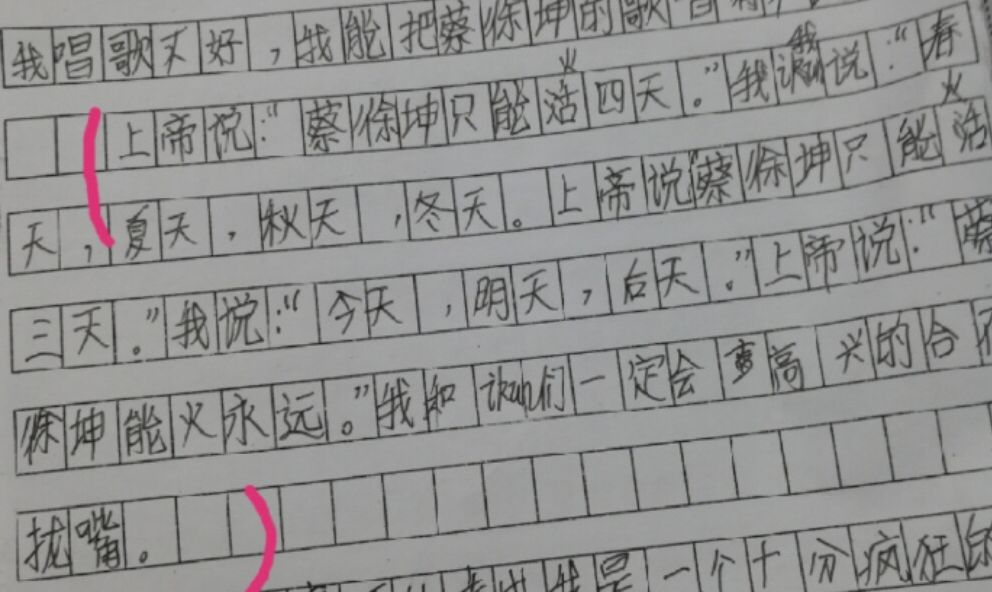 我唱歌又好，我能把蔡徐坤的歌
上帝说：“蔡徐坤只能活四天。”我说：“春
天，夏天，秋天，冬天。上帝说“蔡徐坤只能活
三天。”我说：“今天，明天，后天。”上帝说：“蔡
徐坤能火永远。”我和ikun们一定会高兴的合不
拢嘴。
我是一个十分疯狂的